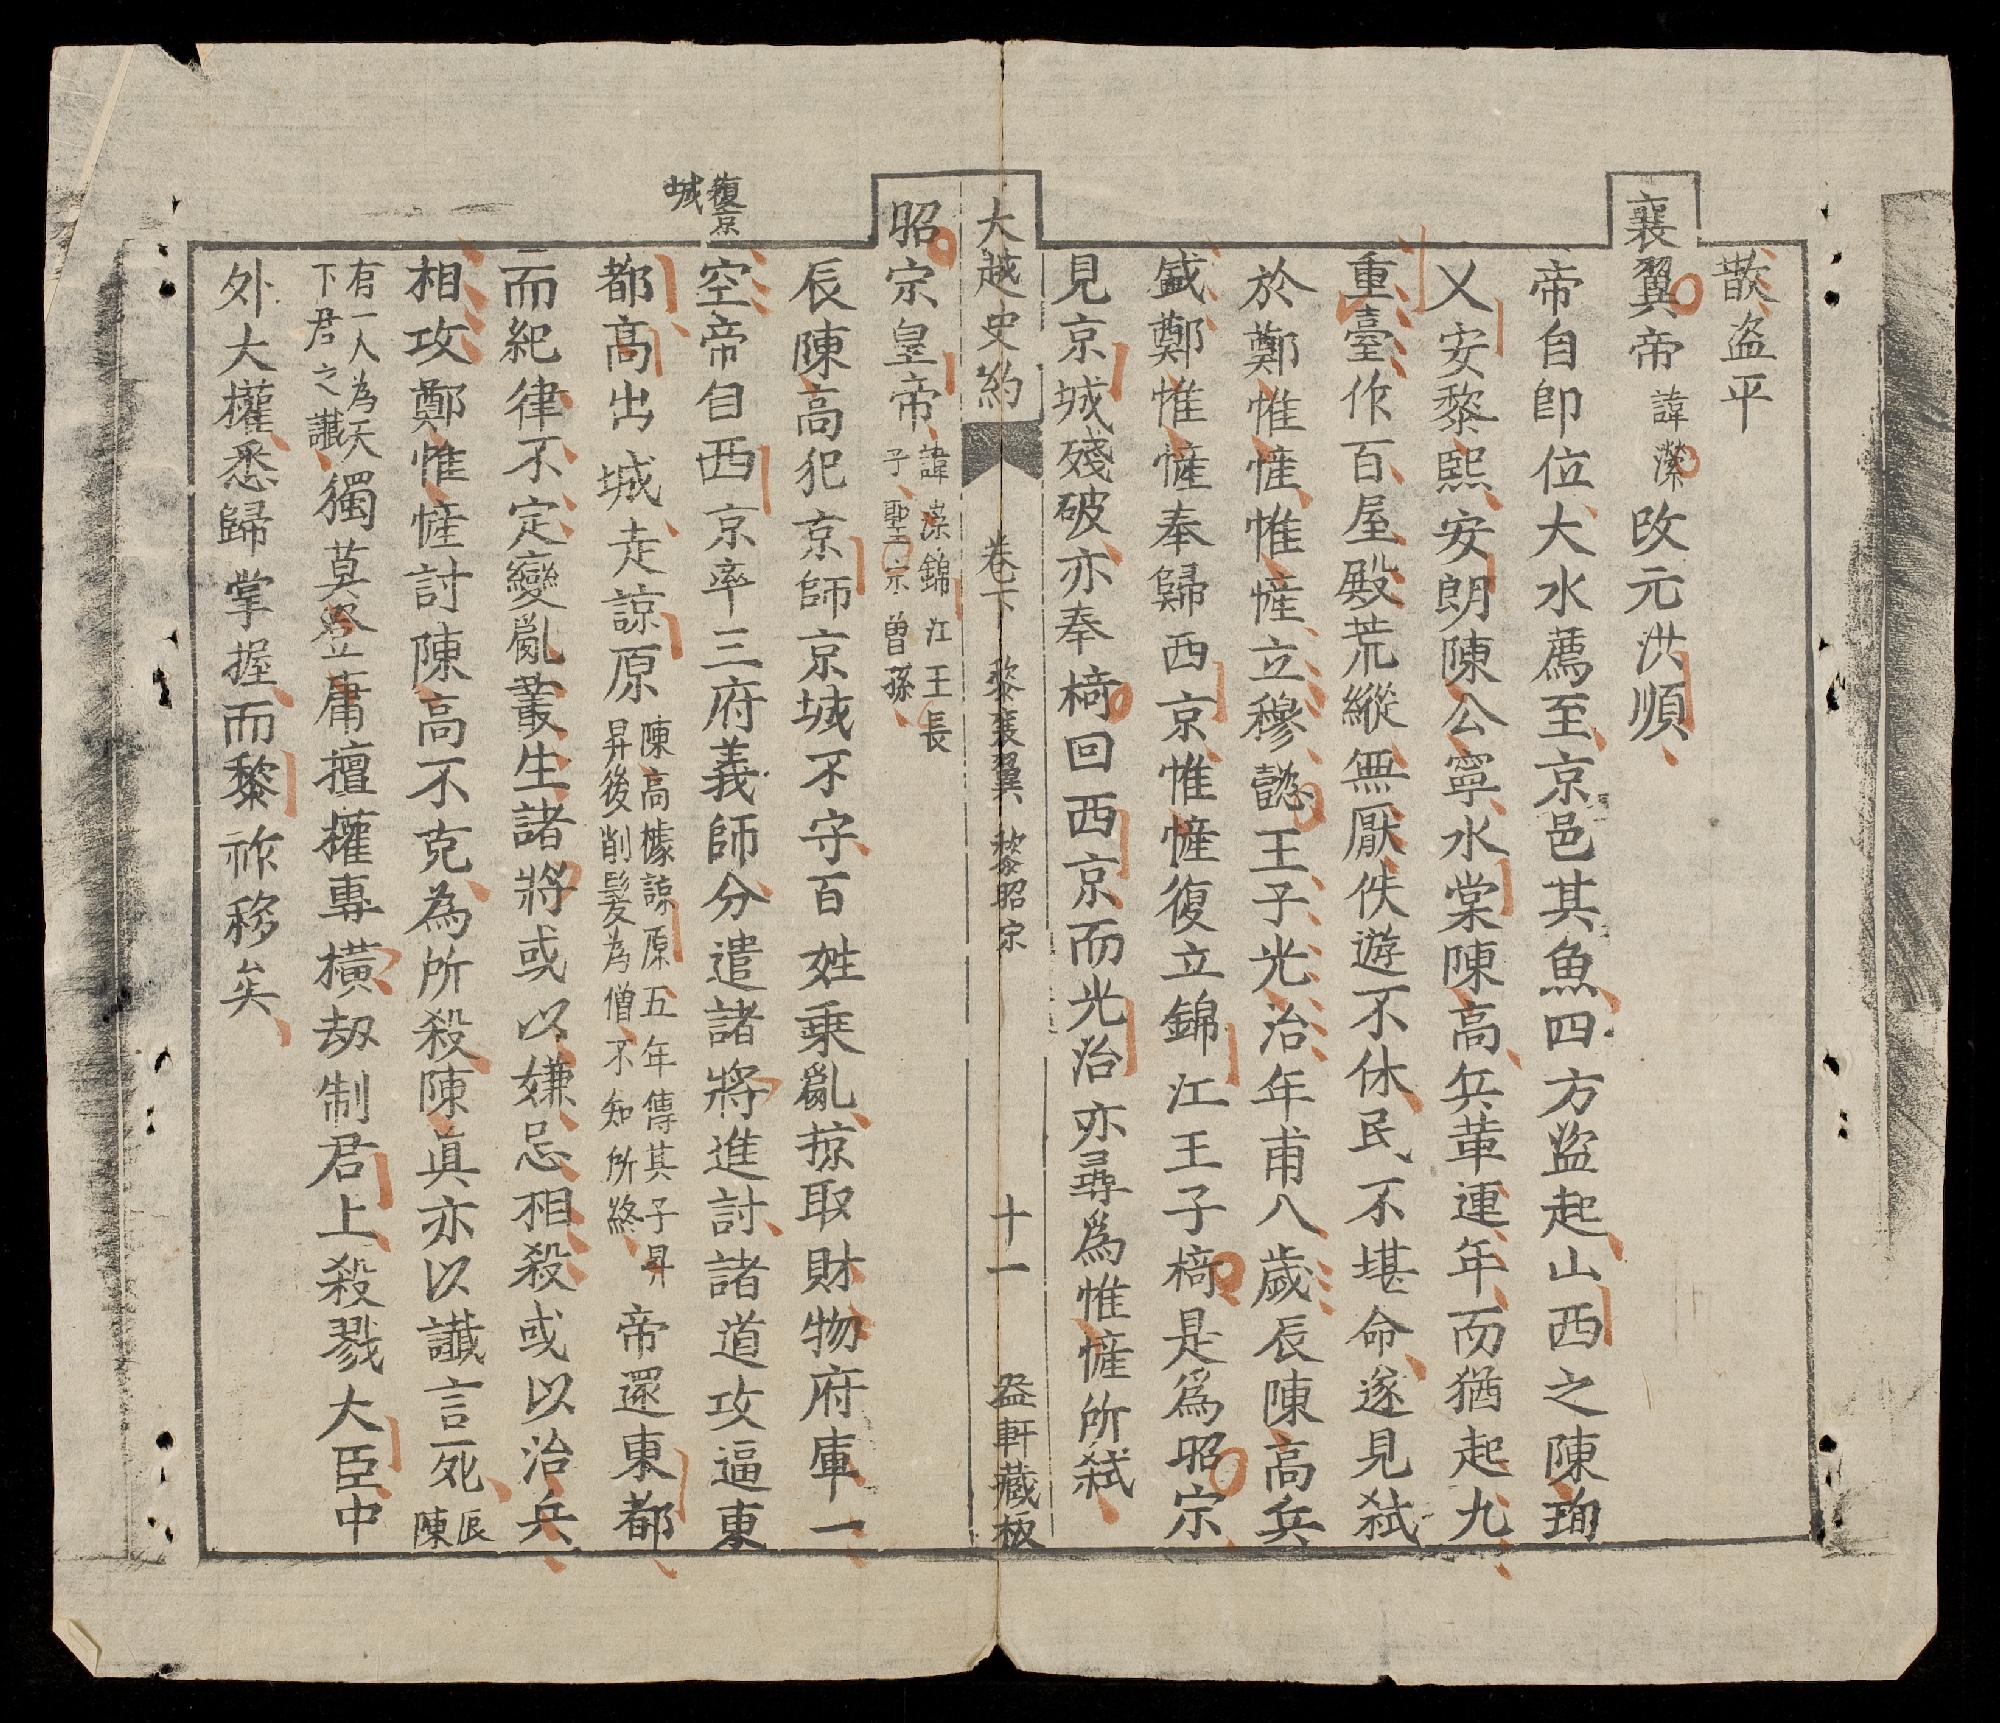 散盗平
襄翼帝諱瀠改元洪順
帝自即位大水薦至京邑其魚四方盗起山西之陳珣
乂安黎熙安朗陳公寧水棠陳高兵革連年而猶起九
重臺作百屋殿荒縱無厭佚遊不休民不堪命遂見弑
於鄭惟㦃惟㦃立穆懿王子光治年甫八歲辰陳高兵
盛鄭惟㦃奉歸西京惟㦃復立錦江王子椅是爲昭宗
見京城殘破亦奉椅回西京而光治亦尋爲惟㦃所弑
大越史約 卷下 黎襄翼 黎昭宗 十一 益軒藏板
昭宗皇帝諱㵮錦江王長
子聖宗曽孫
辰陳高犯京師京城不守百姓乗亂掠取財物府庫一
復京
城
空帝自西京率三府義師分遣諸將進討諸道攻逼東
都高出城走諒原陳高據諒原五年傳其子昇
昇後削髮為僧不知所終帝還東都
而紀律不定變亂叢生諸將或以嫌忌相殺或以治兵
相攻鄭惟㦃討陳高不克為所殺陳真亦以讖言死辰
陳
有一人為天
下君之讖獨莫登庸擅權專橫刼制君上殺戮大臣中
外大權悉歸掌握而黎祚移矣